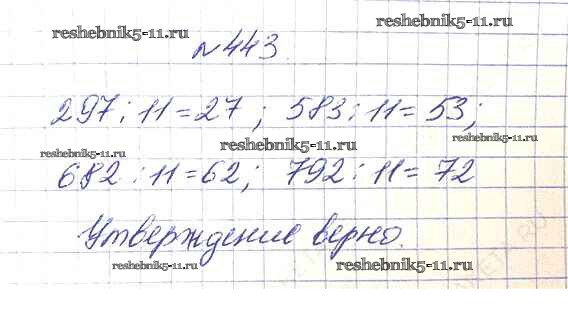 reshebnik5-11.ru reshebnik5-11.ru
№443.
297 : 11 = 27 ; 583 : 11 = 53;
reshebnik5-11.ru reshebnik5-11.ru reshebnik5-11.ru
682 : 11 = 62; 792 : 11 = 72
Утверждение верно.
reshebnik5-11.ru reshebnik5-11.ru